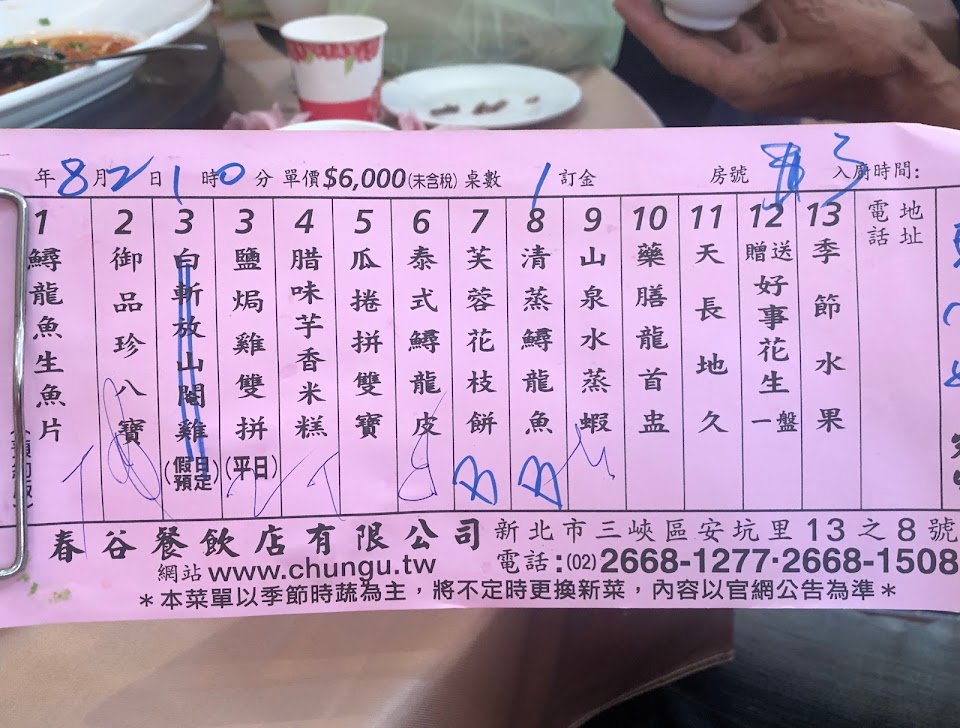 年8月2日1時0分 單價$6,000(未含稅)桌數1 訂金 房號 3 入廚時間:
1 鱘龍魚生魚片
2 御品珍八寶
3 白斬放山閹雞(假日預定)
3 鹽焗雞雙拼(平日)
4 腊味芋香米糕
5 瓜捲拼雙寶
6 泰式鱘龍皮
7 芙蓉花枝餅
8 清蒸鱘龍魚
9 山泉水蒸蝦
10 藥膳龍首盅
11 天長地久
12 贈送好事花生一盤
13 季節水果
地址
電話
春谷餐飲店有限公司 新北市三峽區安坑里13之8號
網站www.chungu.tw 電話:(02)2668-1277·2668-1508
＊本菜單以季節時蔬為主，將不定時更換新菜，內容以官網公告為準＊